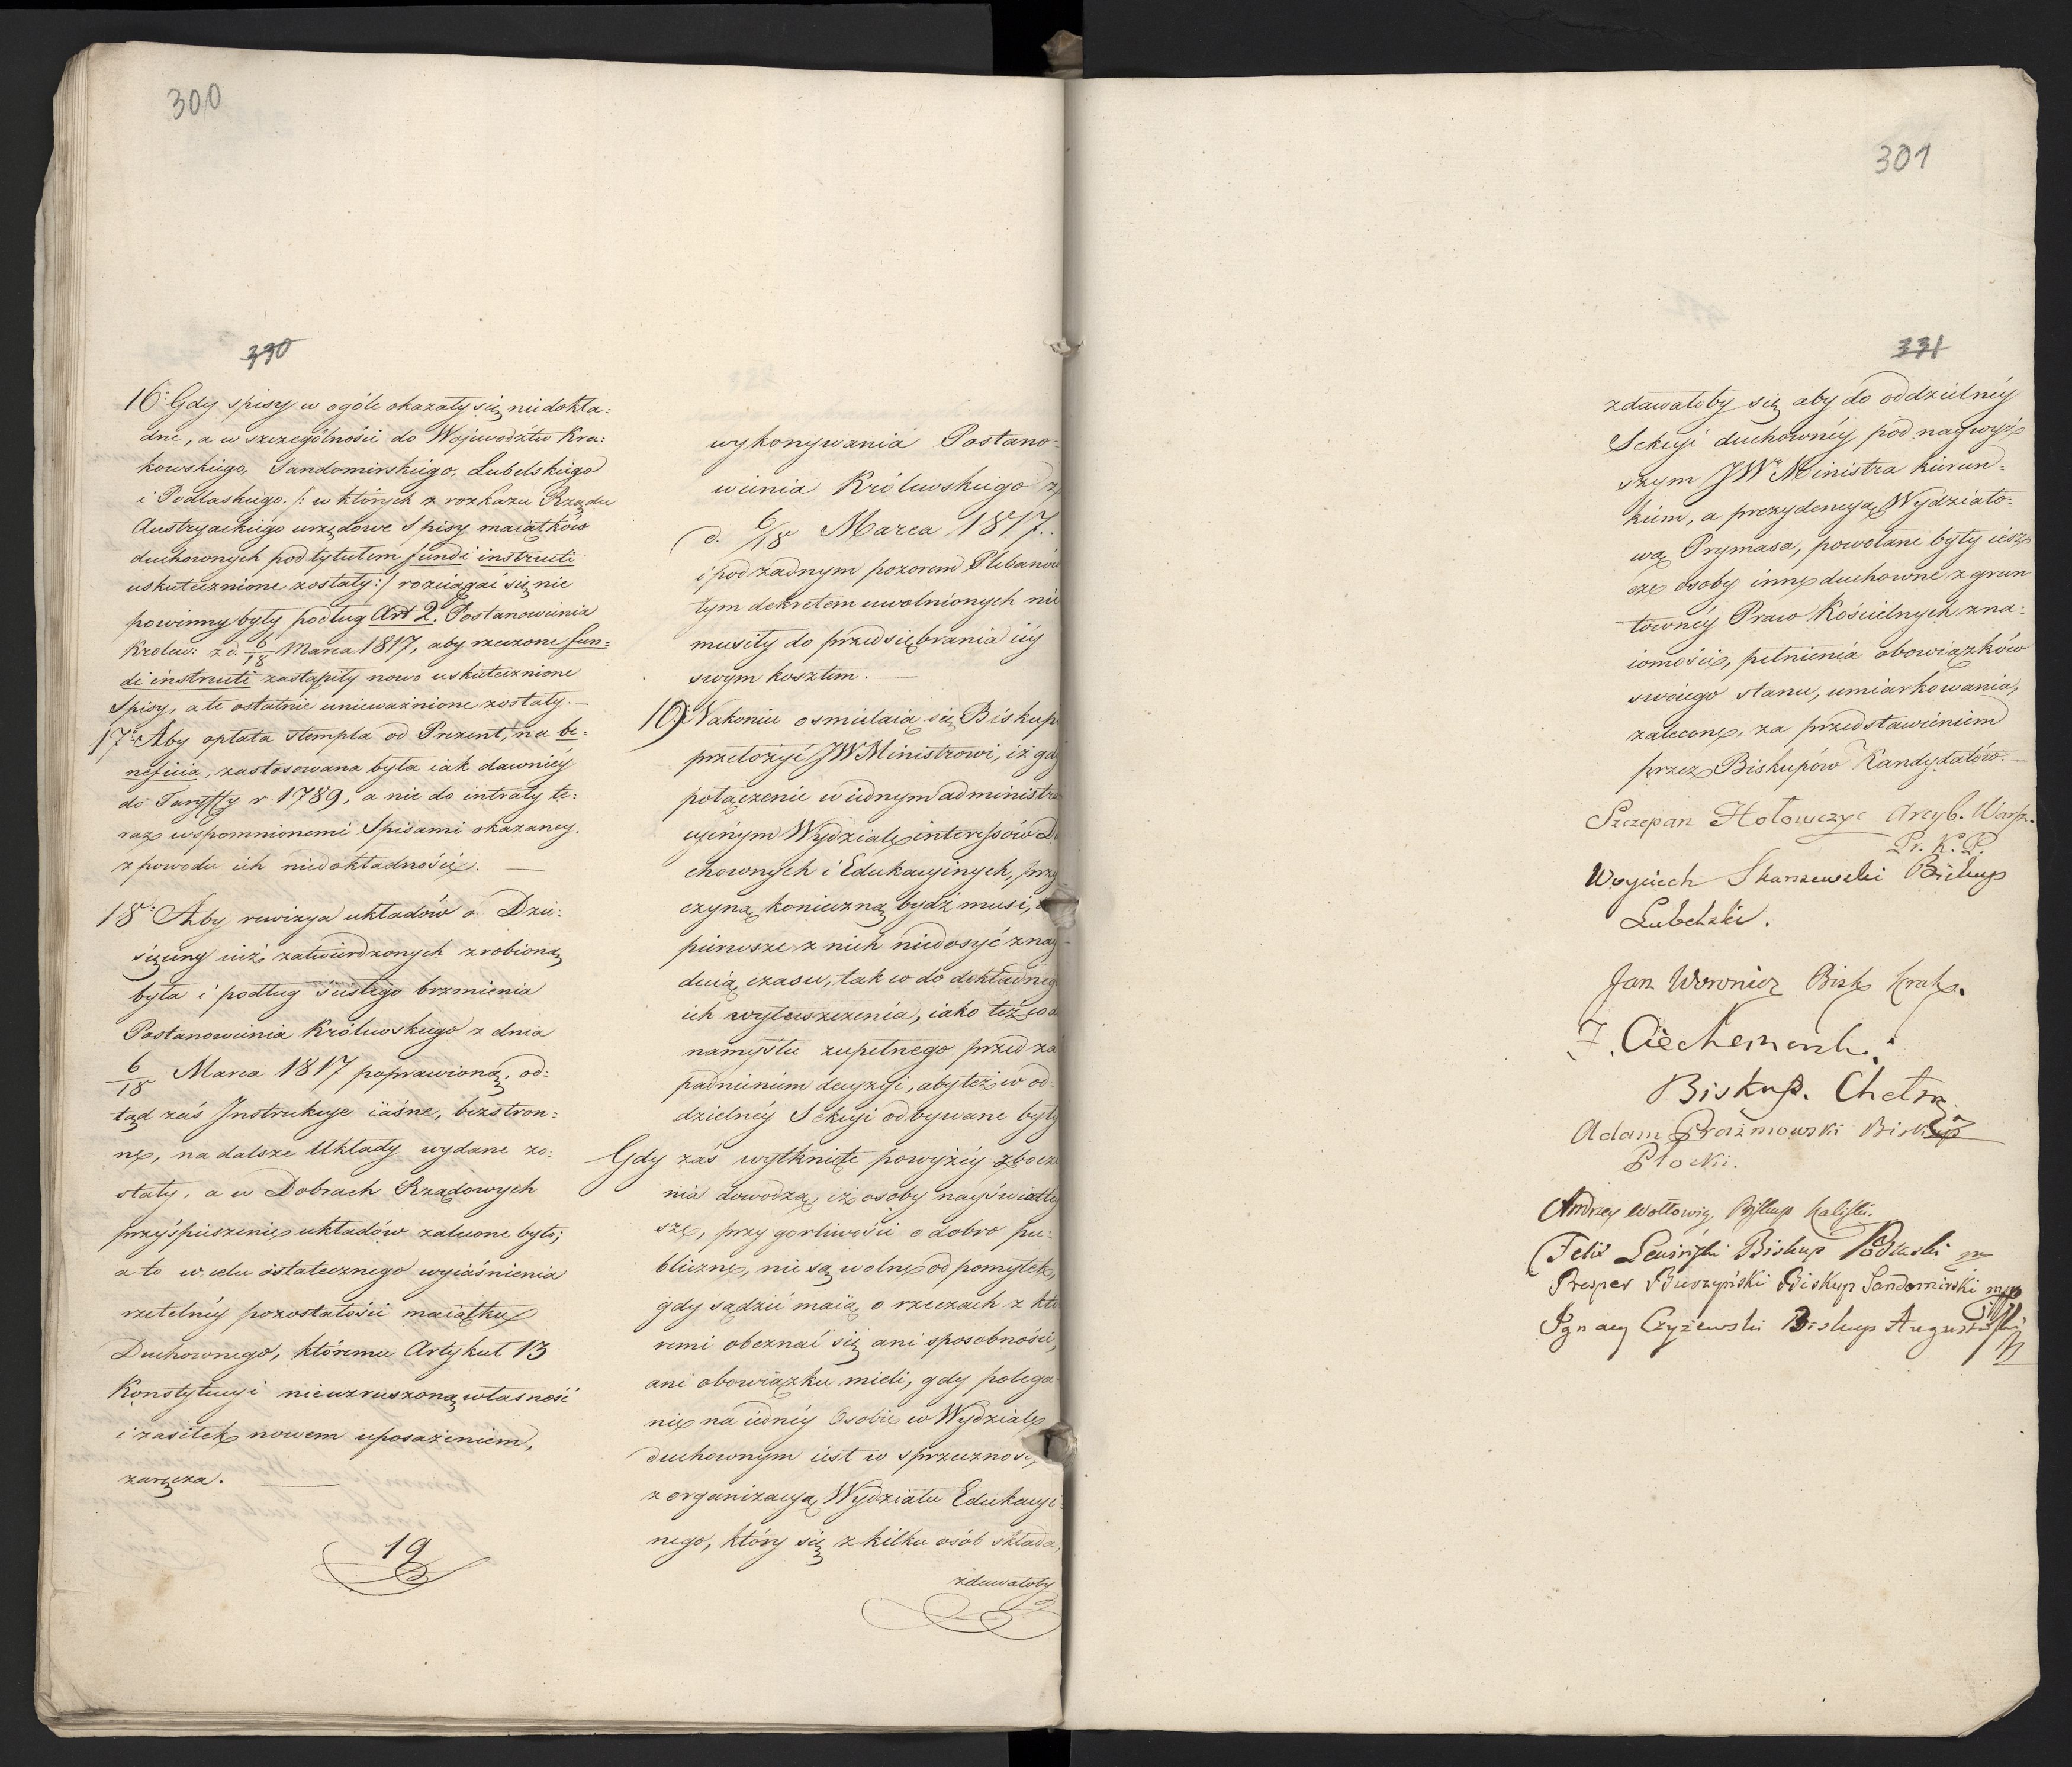 300
330
16.° Gdy spisy w ogóle okazały się niedokła=
dne, a w szczególności do Województw Kra:
kowskiego, Sandomirskiego, Lubelskiego
i Podlaskiego /: w których z rozkazu Rządu
Austryackiego urzędowe Spisy maiątków
duchownych pod tytułem fundi instructi
uskutecznione zostały :/ rozciągać się nie
powinny były podług Art 2. Postanowienia
Królew: z d. 6/18 Marca 1817, aby rzeczone fun=
di instructi zastąpiły nowo uskutecznione
Spisy, a te ostatnie unieważnione zostały. —
17.° Aby opłata stempla od Prezent, na be=
neficia, zastosowana była iak dawniéy
do Taryffy r 1789, a nie do intraty te:
raz wspomnionemi Spisami okazaney,
z powodu ich niedokładności. —
18.° Aby rewizya układów o Dzie:
sięciny iuż zatwierdzonych zrobioną
była i podług ścisłego brzmienia
Postanowienia Królewskiego z dnia
6/18 Marca 1817 poprawioną, od=
tąd zaś Instrukcye iaśne, bezstron=
ne, na dalsze Układy wydane zo:
stały, a w Dobrach Rządowych
przyśpieszenie układów zalecone było;
a to w celu ostatecznego wyiaśnienia
rzetelnéy pozostałości maiątku
Duchownego, któremu Artykuł 13
Konstytucyi niewzruszoną własność
i zasiłek nowem uposażeniem,
zaręcza. —
19
wykonywania Postano=
wienia Królewskiego z
d. 6/18 Marca 1817.
i pod żadnym pozorem Plebanów
tym dekretem uwolnionych nie
musiły do przedsiębrania iéy
swym kosztem. —
19.° Nakoniec osmielaią się Biskup
przełożyć JWMinistrowi, iż gdy
połączenie w iednym administra
cyinym Wydziale interessów Du
chownych i Edukacyinych, przy
czyną konieczną bydź musi, 
pierwsze z nich niedosyć znay=
duią czasu, tak co do dokładnego
ich wytłuszczenia, iako też co do
namysłu zupełnego przed za
padnieniem decyzyi, aby też w od=
dzielnéy Sekcyi odbywane były
Gdy zaś wytknięte powyżéy zbocze
nia dowodzą, iż osoby nayświatley
sze, przy gorliwości o dobro pu:
bliczne, nie są wolne od pomyłek,
gdy sądzić maią o rzeczach z któ
remi obeznać się ani sposobności,
ani obowiązku mieli, gdy polega=
nie na iednéy Osobie w Wydziale
duchownym iest w sprzecznosc,
z organizacyą Wydziału Edukacyi=
nego, który się z kilku osób składa,
zdawałoby
301
331
zdawałoby się aby do oddzielnéy
Sekcyi duchownéy pod naywyż=
szym JWo Ministra kierun=
kiem, a prezydencyą Wydziało=
wą Prymasa, powołane były iesz
cze osoby inne duchowne z grun
townéy Praw Kościelnych zna=
iomości, pełnienia obowiązków
swoiego stanu, umiarkowania,
zalecone, za przedstawieniem
przez Biskupów Kandydatów. —
Szczepan Hołowczyc Arcyb. Warsz.
Pr. K. P.
Woyciech Skarszewski Biskup
Lubelski.
Jan Woronicz Bisk Krak.
F. Ciechanowski
Biskup. Chełm
Adam Prażmowski Biskup
Płocki.
Andrzey Wołłowicz Biskup Kaliski.
Felix Lewiński Biskup Podlaski
Prosper Burzyński Biskup Sandomirski mpp
Ignacy Czyżewski Biskup Augustowski